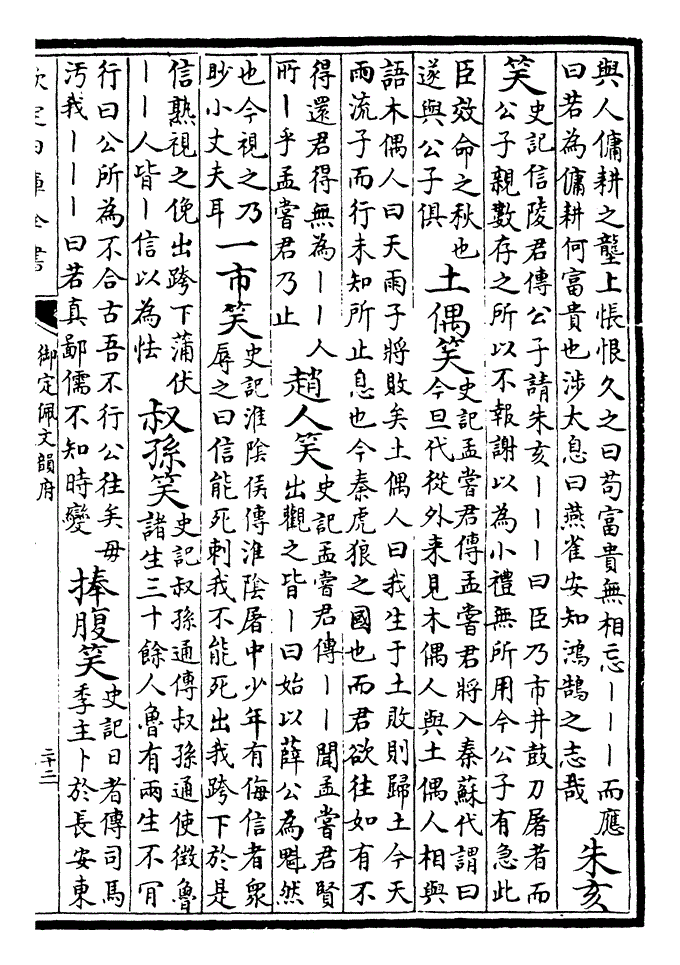 與人傭耕之壟上悵恨久之曰苟富貴無相忘｜｜｜而應
曰若為傭耕何富貴也涉太息曰燕雀安知鴻鵠之志哉
朱亥
笑
史記信陵君傳公子請朱亥｜｜｜曰臣乃市井鼓刀屠者而
公子親數存之所以不報謝以為小禮無所用今公子有急此
臣效命之秋也
遂與公子俱
土偶笑
史記孟嘗君傳孟嘗君將入秦蘇代謂曰
今旦代從外来見木偶人與土偶人相與
語木偶人曰天雨子將敗矣土偶人曰我生于土敗則歸土今天
雨流子而行未知所止息也今秦虎狼之國也而君欲往如有不
得還君得無為｜｜人
所｜乎孟嘗君乃止
趙人笑
史記孟嘗君傳｜｜聞孟嘗君賢
出觀之皆｜曰始以薛公為魁然
也今視之乃
眇小丈夫耳
一市笑
史記淮陰侯傳淮陰屠中少年有侮信者衆
辱之曰信能死刺我不能死出我跨下於是
信熟視之俛出跨下蒲伏
｜｜人皆｜信以為怯
叔孫笑
史記叔孫通傳叔孫通使徵魯
諸生三十餘人魯有兩生不肎
行曰公所為不合古吾不行公往矣毋
汚我｜｜｜曰若真鄙儒不知時變
捧腹笑
史記日者傳司馬
季主卜於長安東
欽定四庫全書
御定佩文韻府
二十二